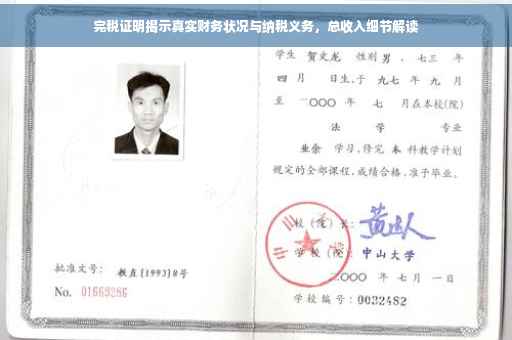 完税证明揭示真实财务状况与纳税义务，总收入细节解读
学生 贺文龙 性别 男 、七三 年
四 月 日生,于 九七 年 九 月
至 二〇〇〇 年 七 月在本校(院)
法 学 专业
业余 学习,修完 本 科教学计划
规定的全部课程,成绩合格,准予毕业。
校(院)长:
学校(院): 中山大学
二〇〇〇 年 七 月 一 日
学校编号: 0032482
批准文号: 教直[1993]8号
No. 01669286